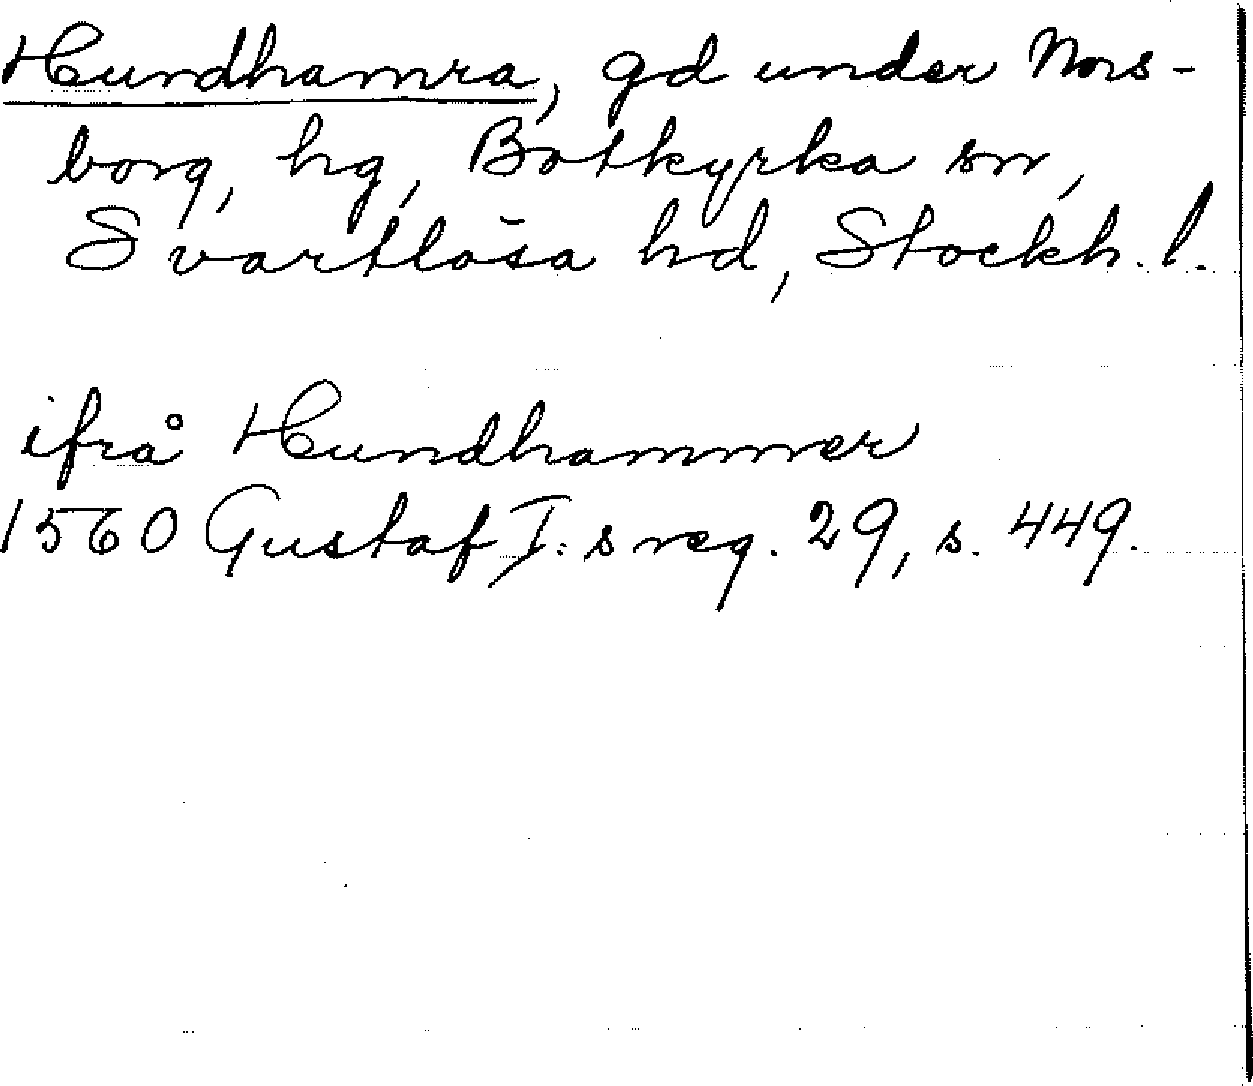 Hundhamra, gd under Nors-
borg, hg, Botkyrka sn,
Svartlösa hd, Stockh. l.
ifrå Hundhammer
1560 Gustaf I:s reg. 29, s. 449.